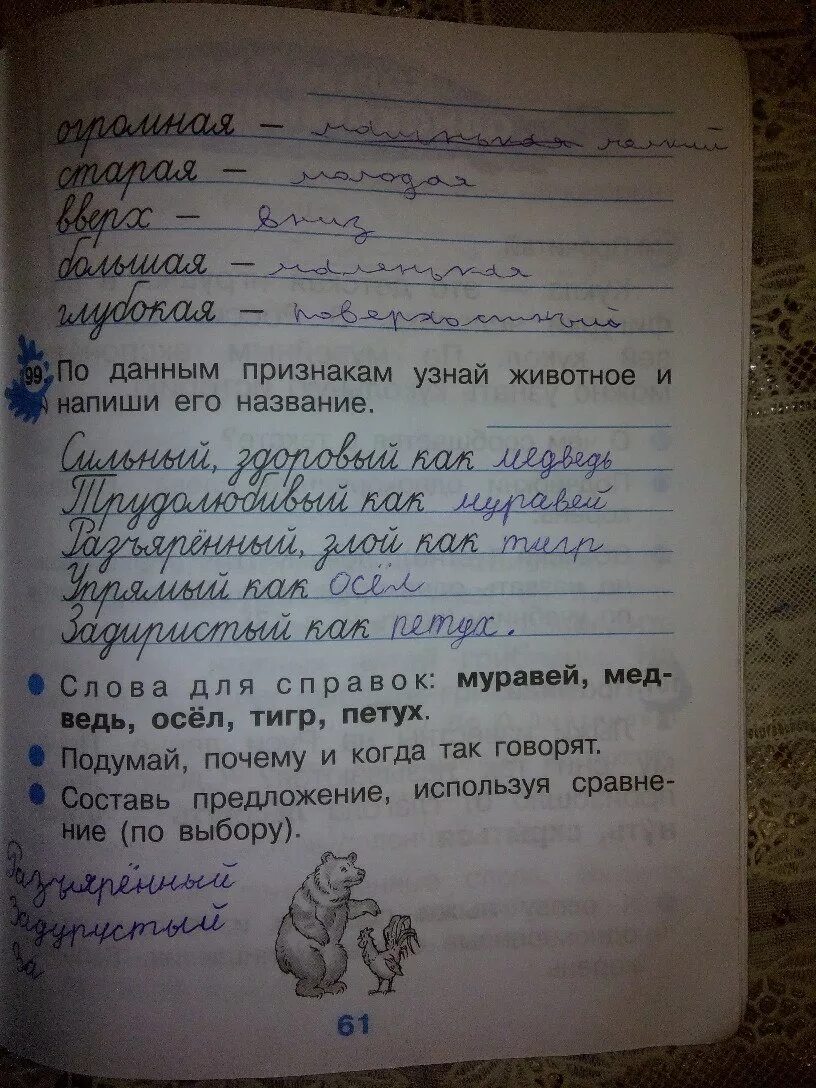 огромная — маленькая мелкий
старая — молодая
вверх — вниз
большая — маленькая
глубокая — поверхостный
99 По данным признакам узнай животное и
напиши его название.
Сильный, здоровый как медведь
Трудолюбивый как муравей
Разъярённый, злой как тигр
Упрямый как осёл
Задиристый как петух.
Слова для справок: муравей, мед-
ведь, осёл, тигр, петух.
Подумай, почему и когда так говорят.
Составь предложение, используя сравне-
ние (по выбору).
Разъярённый
Задурустый
За
61